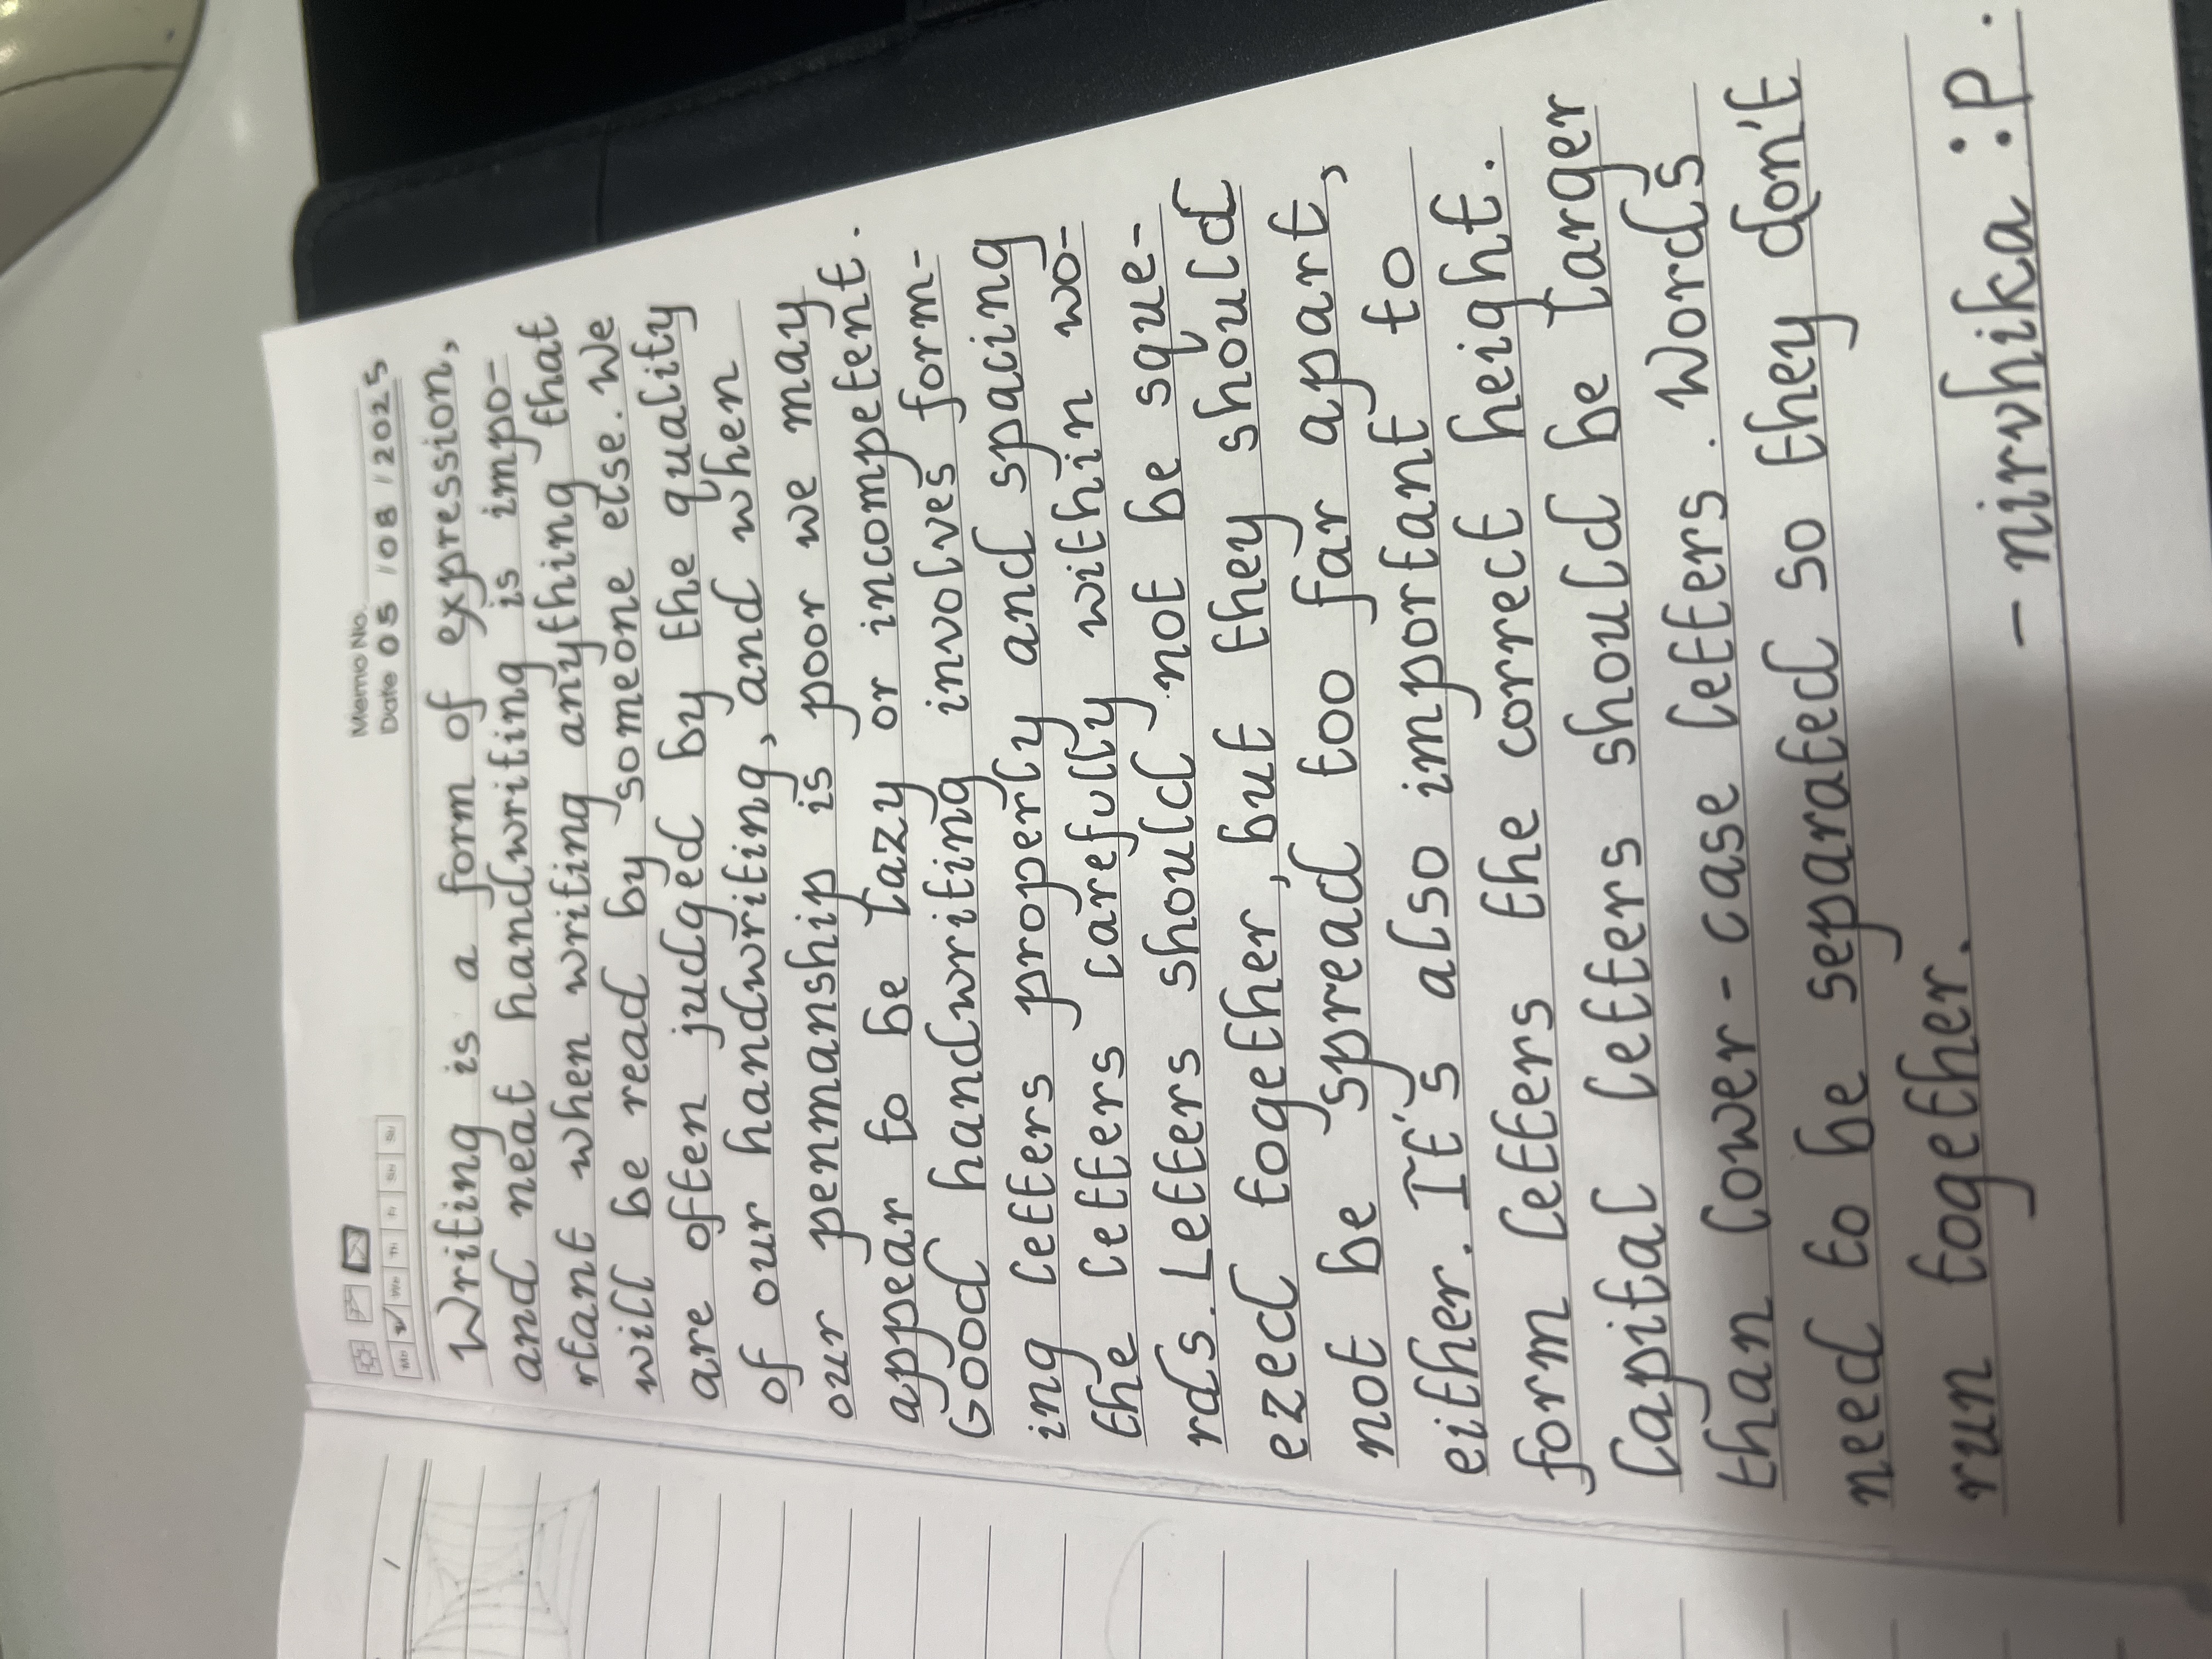 Memo No.
Date 05 / 08 / 2025
Mo Tu We Th Fr Sa Su
Writing is a form of expression,
and neat handwriting is impo-
rtant when writing anything that
will be read by someone else. We
are often judged by the quality
of our handwriting, and when
our penmanship is poor we may
appear to be lazy or incompetent.
Good handwriting involves form-
ing letters properly and spacing
the letters carefully within wo-
rds. Letters should not be sque-
ezed together, but they should
not be spread too far apart,
either. It's also important to
form letters the correct height.
Capital letters should be larger
than lower-case letters. Words
need to be separated so they don't
run together.
- nirvhika :P.